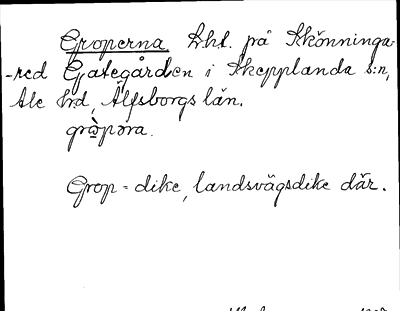 Groperna lht. på Skönninga-
-red Gategården i Skepplanda s:n,
Ale hd, Älfsborgs län.
grꙍ̀pəra.
Grop = dike, landsvägsdike där.